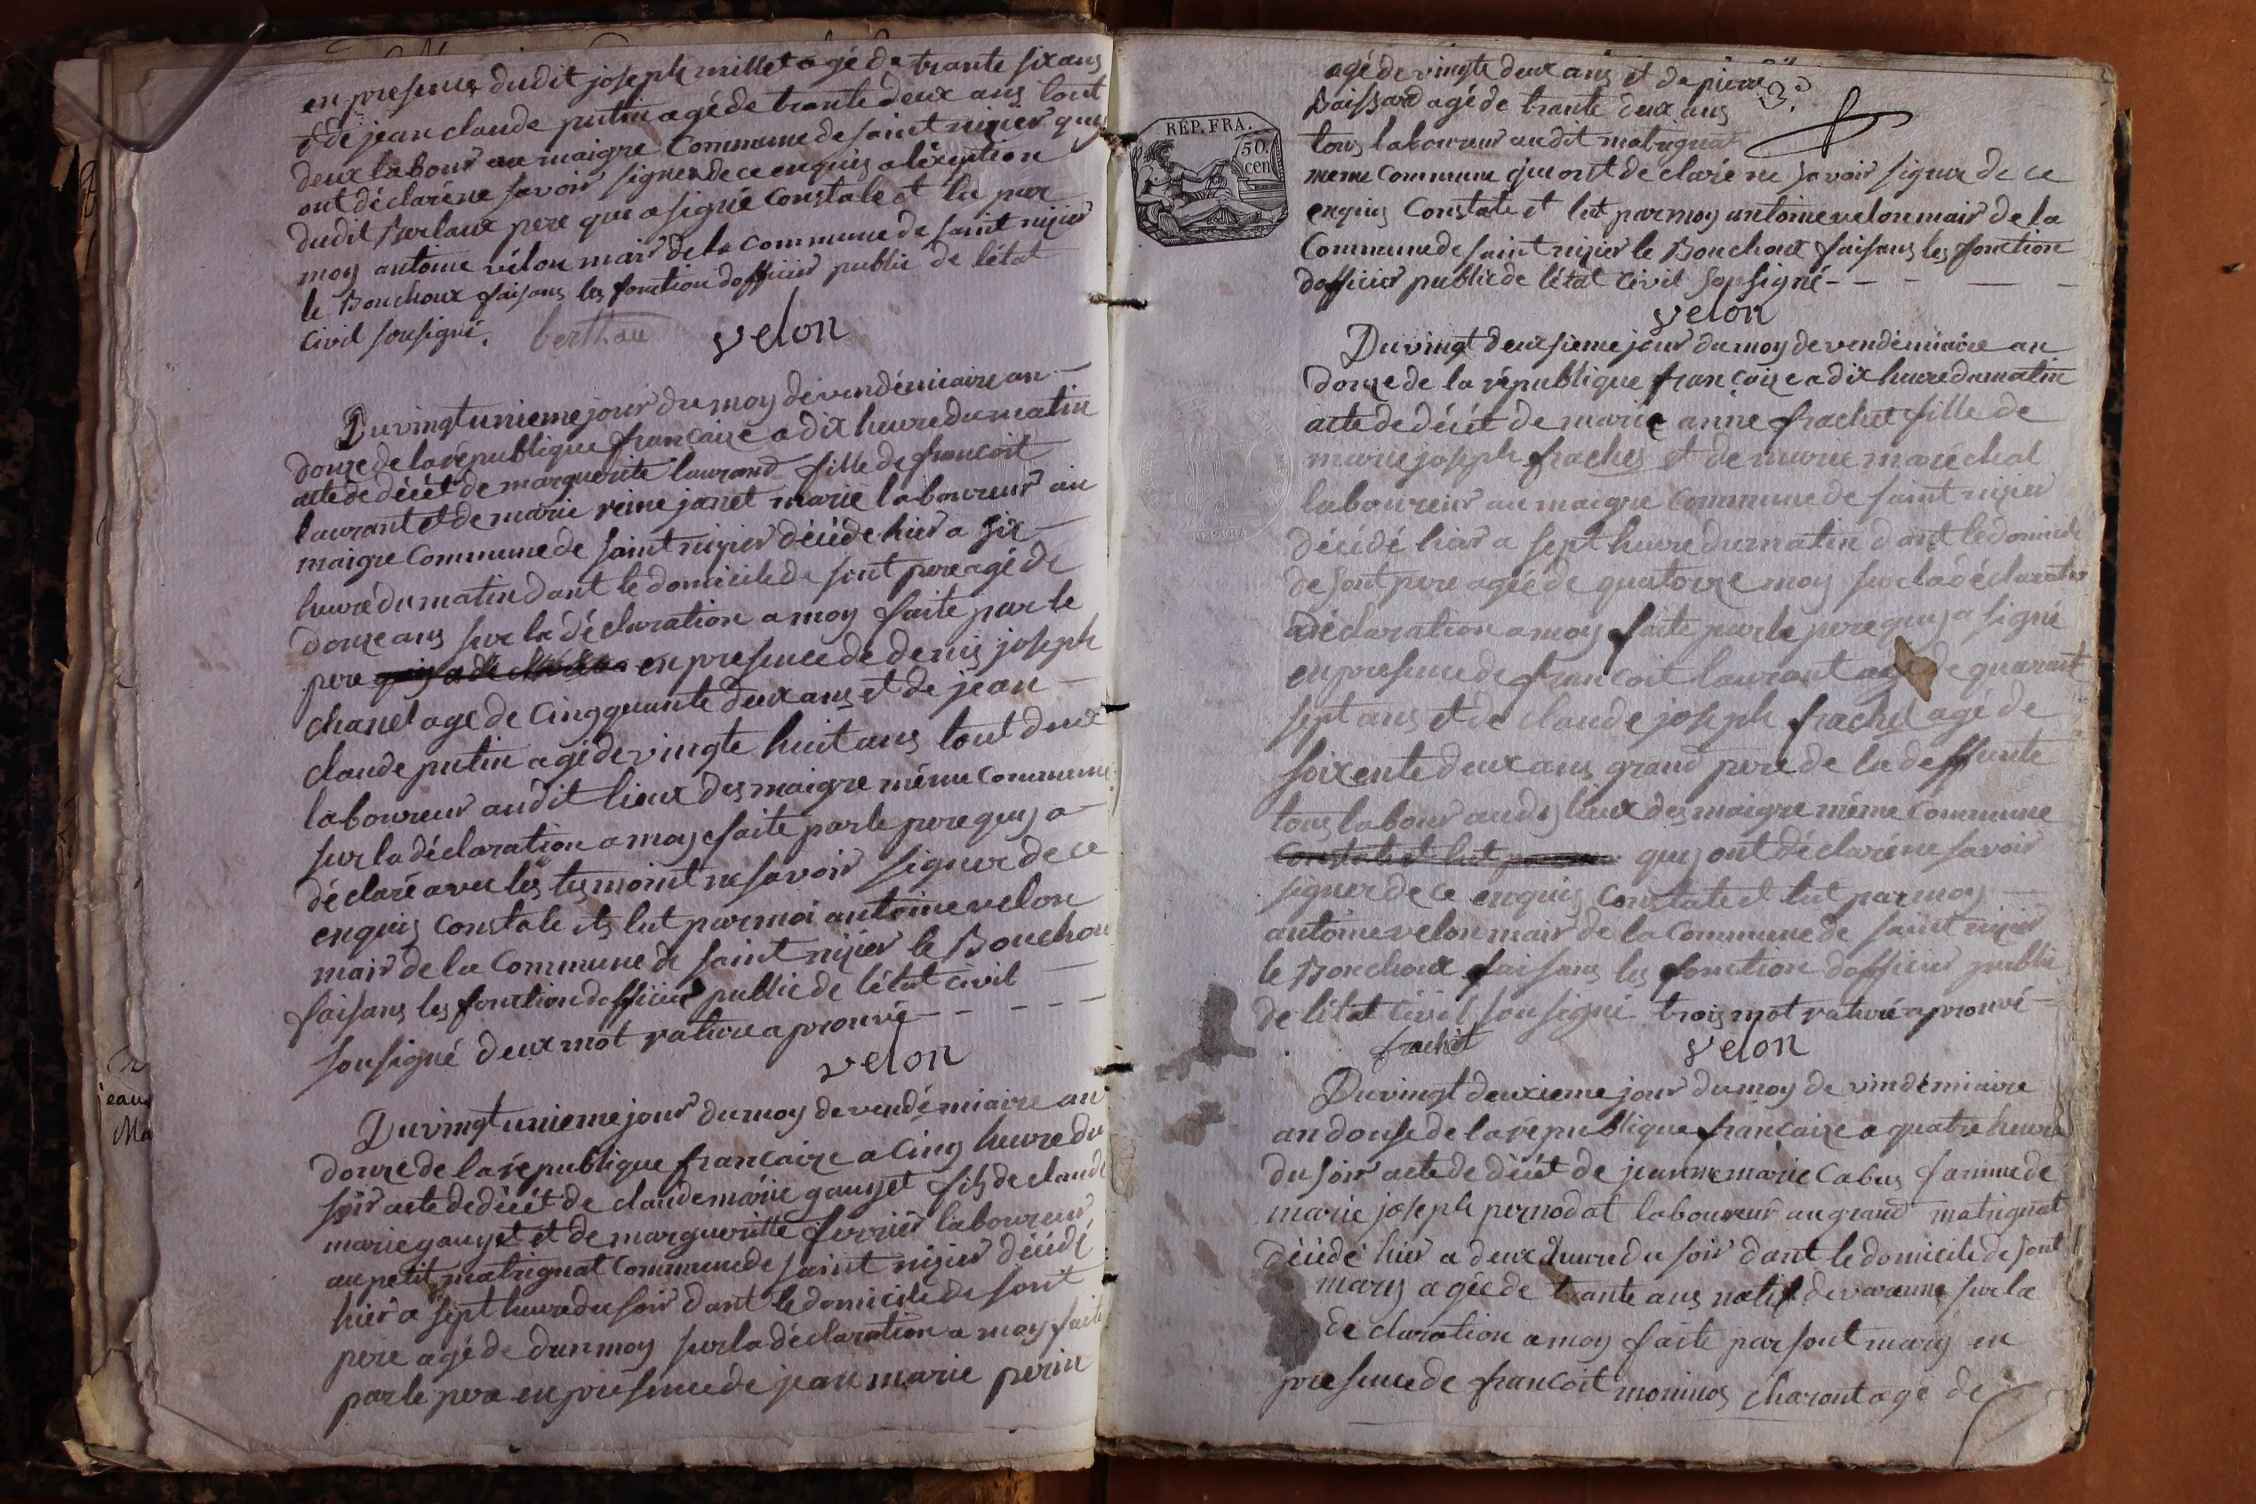 en presence dudit joseph millet agé de trante six ans
et de jean claude putin agé de trante deux ans tout
deux labour au maigre Commune de saint nizier quy
ont déclaré ne savoir signer de ce enquis a léxeption
dudit Berlaux pere qui a signé Constate et lu par
moy antoine vélon mair de la Commune de saint nizier
le Bouchoux faisans les fonction dofficier public de létat
Civil sousigné. berthau velon
Du vingt unieme jour du moy de vendémiaire an
douze de la république francaize a dix heure du matin
acte de décét de marguerite laurand fille de francoit
laurant et de marie reine janet marie laboureur au
maigre Commune de saint nizier décéde hier a six
heure du matin dant le domicile de sont pere agé de
douze ans sur la déclaration a moy faite par le
pere en presence de denis joseph
chanel age de Cinqquante deux ans et de jean
claude putin agé de vingte huit ans tout deux
laboureur audit lieux des maigre même Commune
sur la déclaration a moy faite par le pere quy a
déclaré avec les tesmoint ne savoir signer de ce
enquis Constate et lut par moi antoine velon
mair de la Commune de saint nizier le Bouchou
faisans les fonction dofficier public de létat Civil
sousigné deux mot rature aprouvé
velon
Du vingt unieme jour du moy de vendémiaire an
douze de la république francaize a Cinq heure du
soir acte de décét de claude marie gauget fils de claude
marie gauget et de margueritte ferrier laboureur
au petit matrignat Commune de saint nizier décédé
hier a sept heure du soir dant le domicile de sont
pere agé de dun moy sur la déclaration a moy faite
par le pere en presence de jean marie perin
agé de vingte deux ans et de pierre
Baissard agé de trante deux ans
tous laboureur audit matrignat
meme Commune qui ont déclaré ne savoir signer de ce
enquis Constate et lut par moy antoine velon mair de la
Commune de saint nizier le Bouchoux faisans les fonction
dofficier public de létat Civil sousigné
RÉP. FRA.
50.
cen
velon
Du vingt deuxsieme jour du moy de vendémiaire an
douze de la république francaize a dix heure du matin
acte de décét de marie anne frachet fille de
marie joseph frachet et de marie maréchal
laboureur au maigre Commune de saint nizier
décédé hier a sept heure du matin dant le domicile
de sont pere agée de quatorze moy sur la déclaration
déclaration a moy faite par le pere quy a signé
en presence de francoit laurant agé de quarant
sept ans et de claude joseph frachet agé de
soixente deux ans grand pere de la deffunte
tous labour audis lieux des maigre même Commune
Constate et lut quy ont déclaré ne savoir
signer de ce enquis Constate et lut par moy
antoine velon mair de la Commune de saint nizier
le Bouchoux faisans les fonction dofficier public
de létat Civil sousigné trois mot rature aprouvé
frachet velon
Du vingt deuxieme jour du moy de vindémiaire
an douse de la république francaize a quatre heure
du soir acte de décét de jeanne marie Cabus famme de
marie joseph pernodat laboureur au grand matrignat
décédé hier a deux heure du soir dant le domicile de sont
mary agée de trante ans natif de varanne sur la
declaration a moy faite par sont mary en
presence de francoit moninos charont agé de